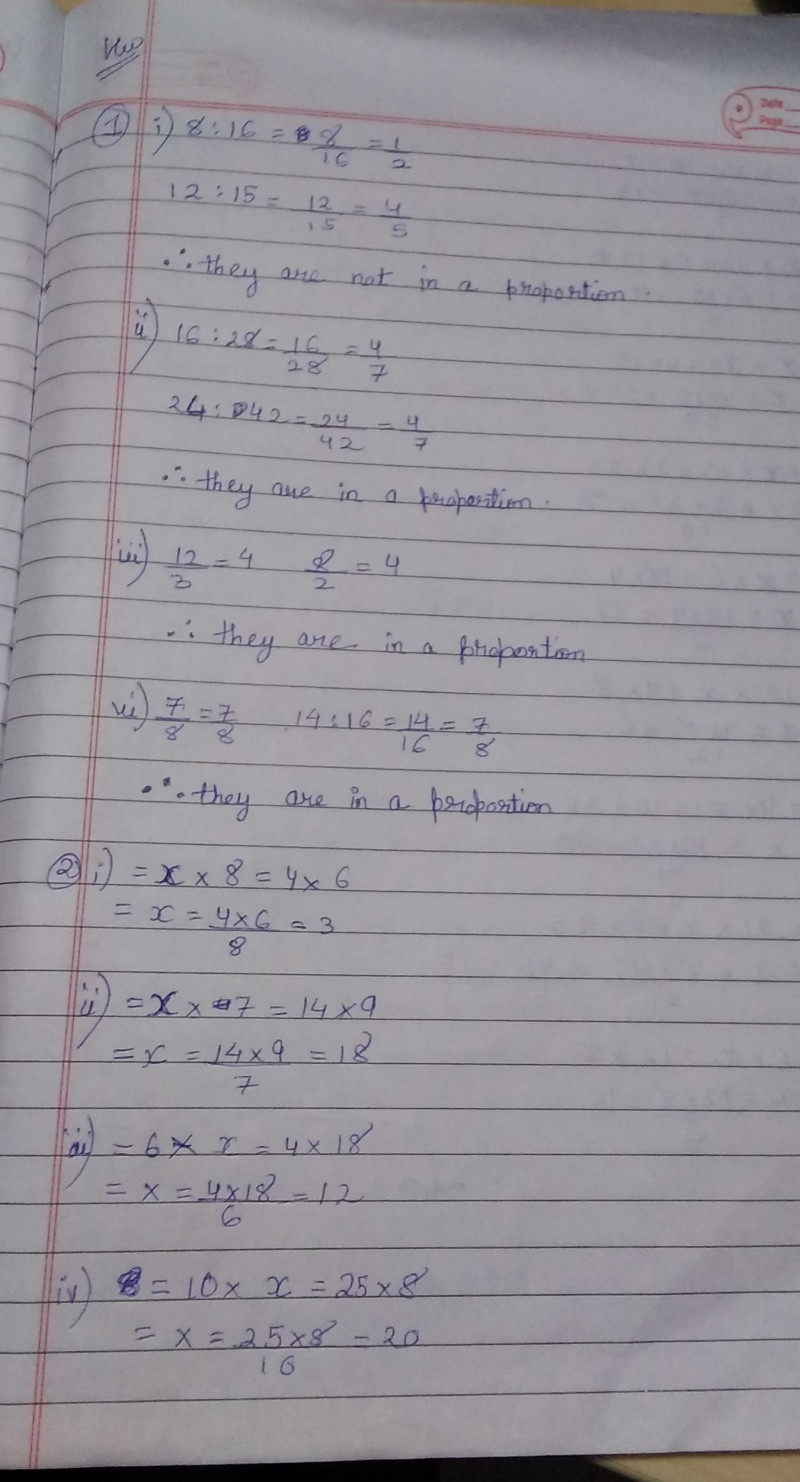 HW
Date
Page
① i) 8:16 = 8/16 = 1/2
12:15 = 12/15 = 4/5
∴ they are not in a proportion.
ii) 16:28 = 16/28 = 4/7
24:42 = 24/42 = 4/7
∴ they are in a proportion.
iii) 12/3 = 4 8/2 = 4
∴ they are in a proportion
vi) 7/8 = 7/8 14:16 = 14/16 = 7/8
∴ they are in a proportion
② i) = x × 8 = 4 × 6
= x = 4×6/8 = 3
ii) = x × 7 = 14 × 9
= x = 14×9/7 = 18
iii) = 6 × x = 4 × 18
= x = 4×18/6 = 12
iv) = 10 × x = 25 × 8
= x = 25×8/10 = 20